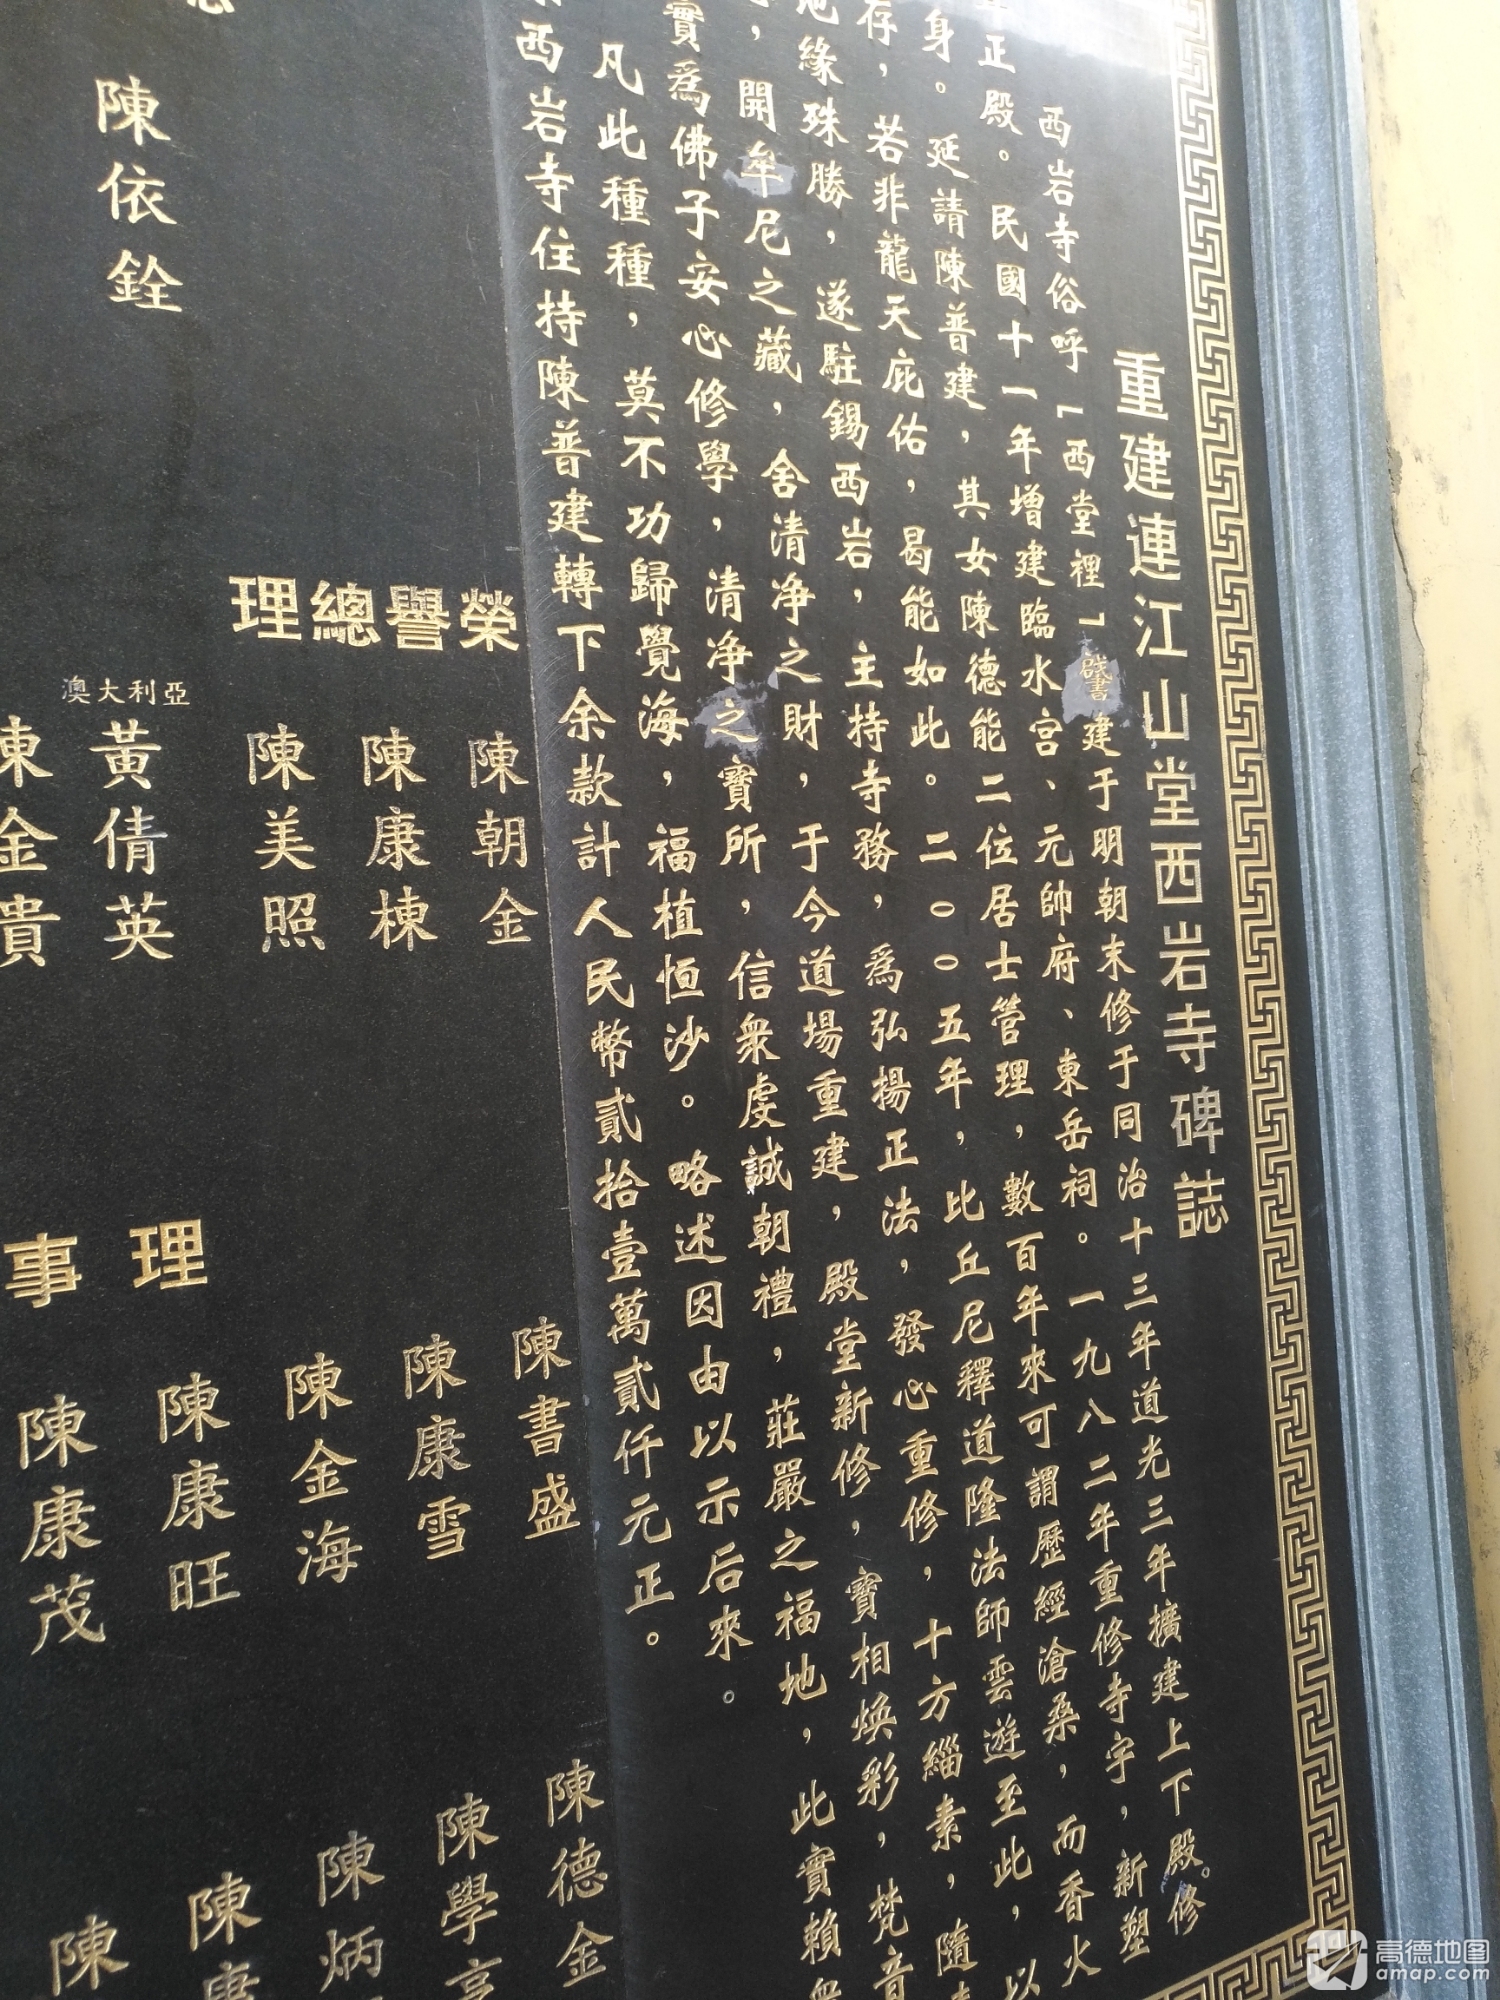 重建連江山堂西岩寺碑誌
西岩寺俗呼「西堂裡」建于明朝末修于同治十三年道光三年擴建上下殿。修
正殿。民國十一年增建臨水宮、元帥府、東岳祠。一九八二年重修寺宇，新塑
身。延請陳普建，其女陳德能二位居士管理，數百年來可謂歷經滄桑，而香火
存，若非龍天庇佑，曷能如此。二〇〇五年，比丘尼釋道隆法師雲遊至此，以
地緣殊勝，遂駐錫西岩，主持寺務，爲弘揚正法，發心重修，十方緇素，隨
，開牟尼之藏，舍清净之財，于今道場重建，殿堂新修，寶相焕彩，梵音
實爲佛子安心修學，清净之寶所，信衆虔誠朝禮，莊嚴之福地，此實賴衆
凡此種種，莫不功歸覺海，福植恒沙。略述因由以示后來。
西岩寺住持陳普建轉下余款計人民幣貳拾壹萬貳仟元正。
榮譽總理
陳朝金
陳康棟
陳美照
澳大利亞
黃倩英
陳金貴
陳依銓
理事
陳書盛
陳康雪
陳金海
陳康旺
陳康茂
陳德金
陳學
陳炳
陳康
陳
高德地图
amap.com